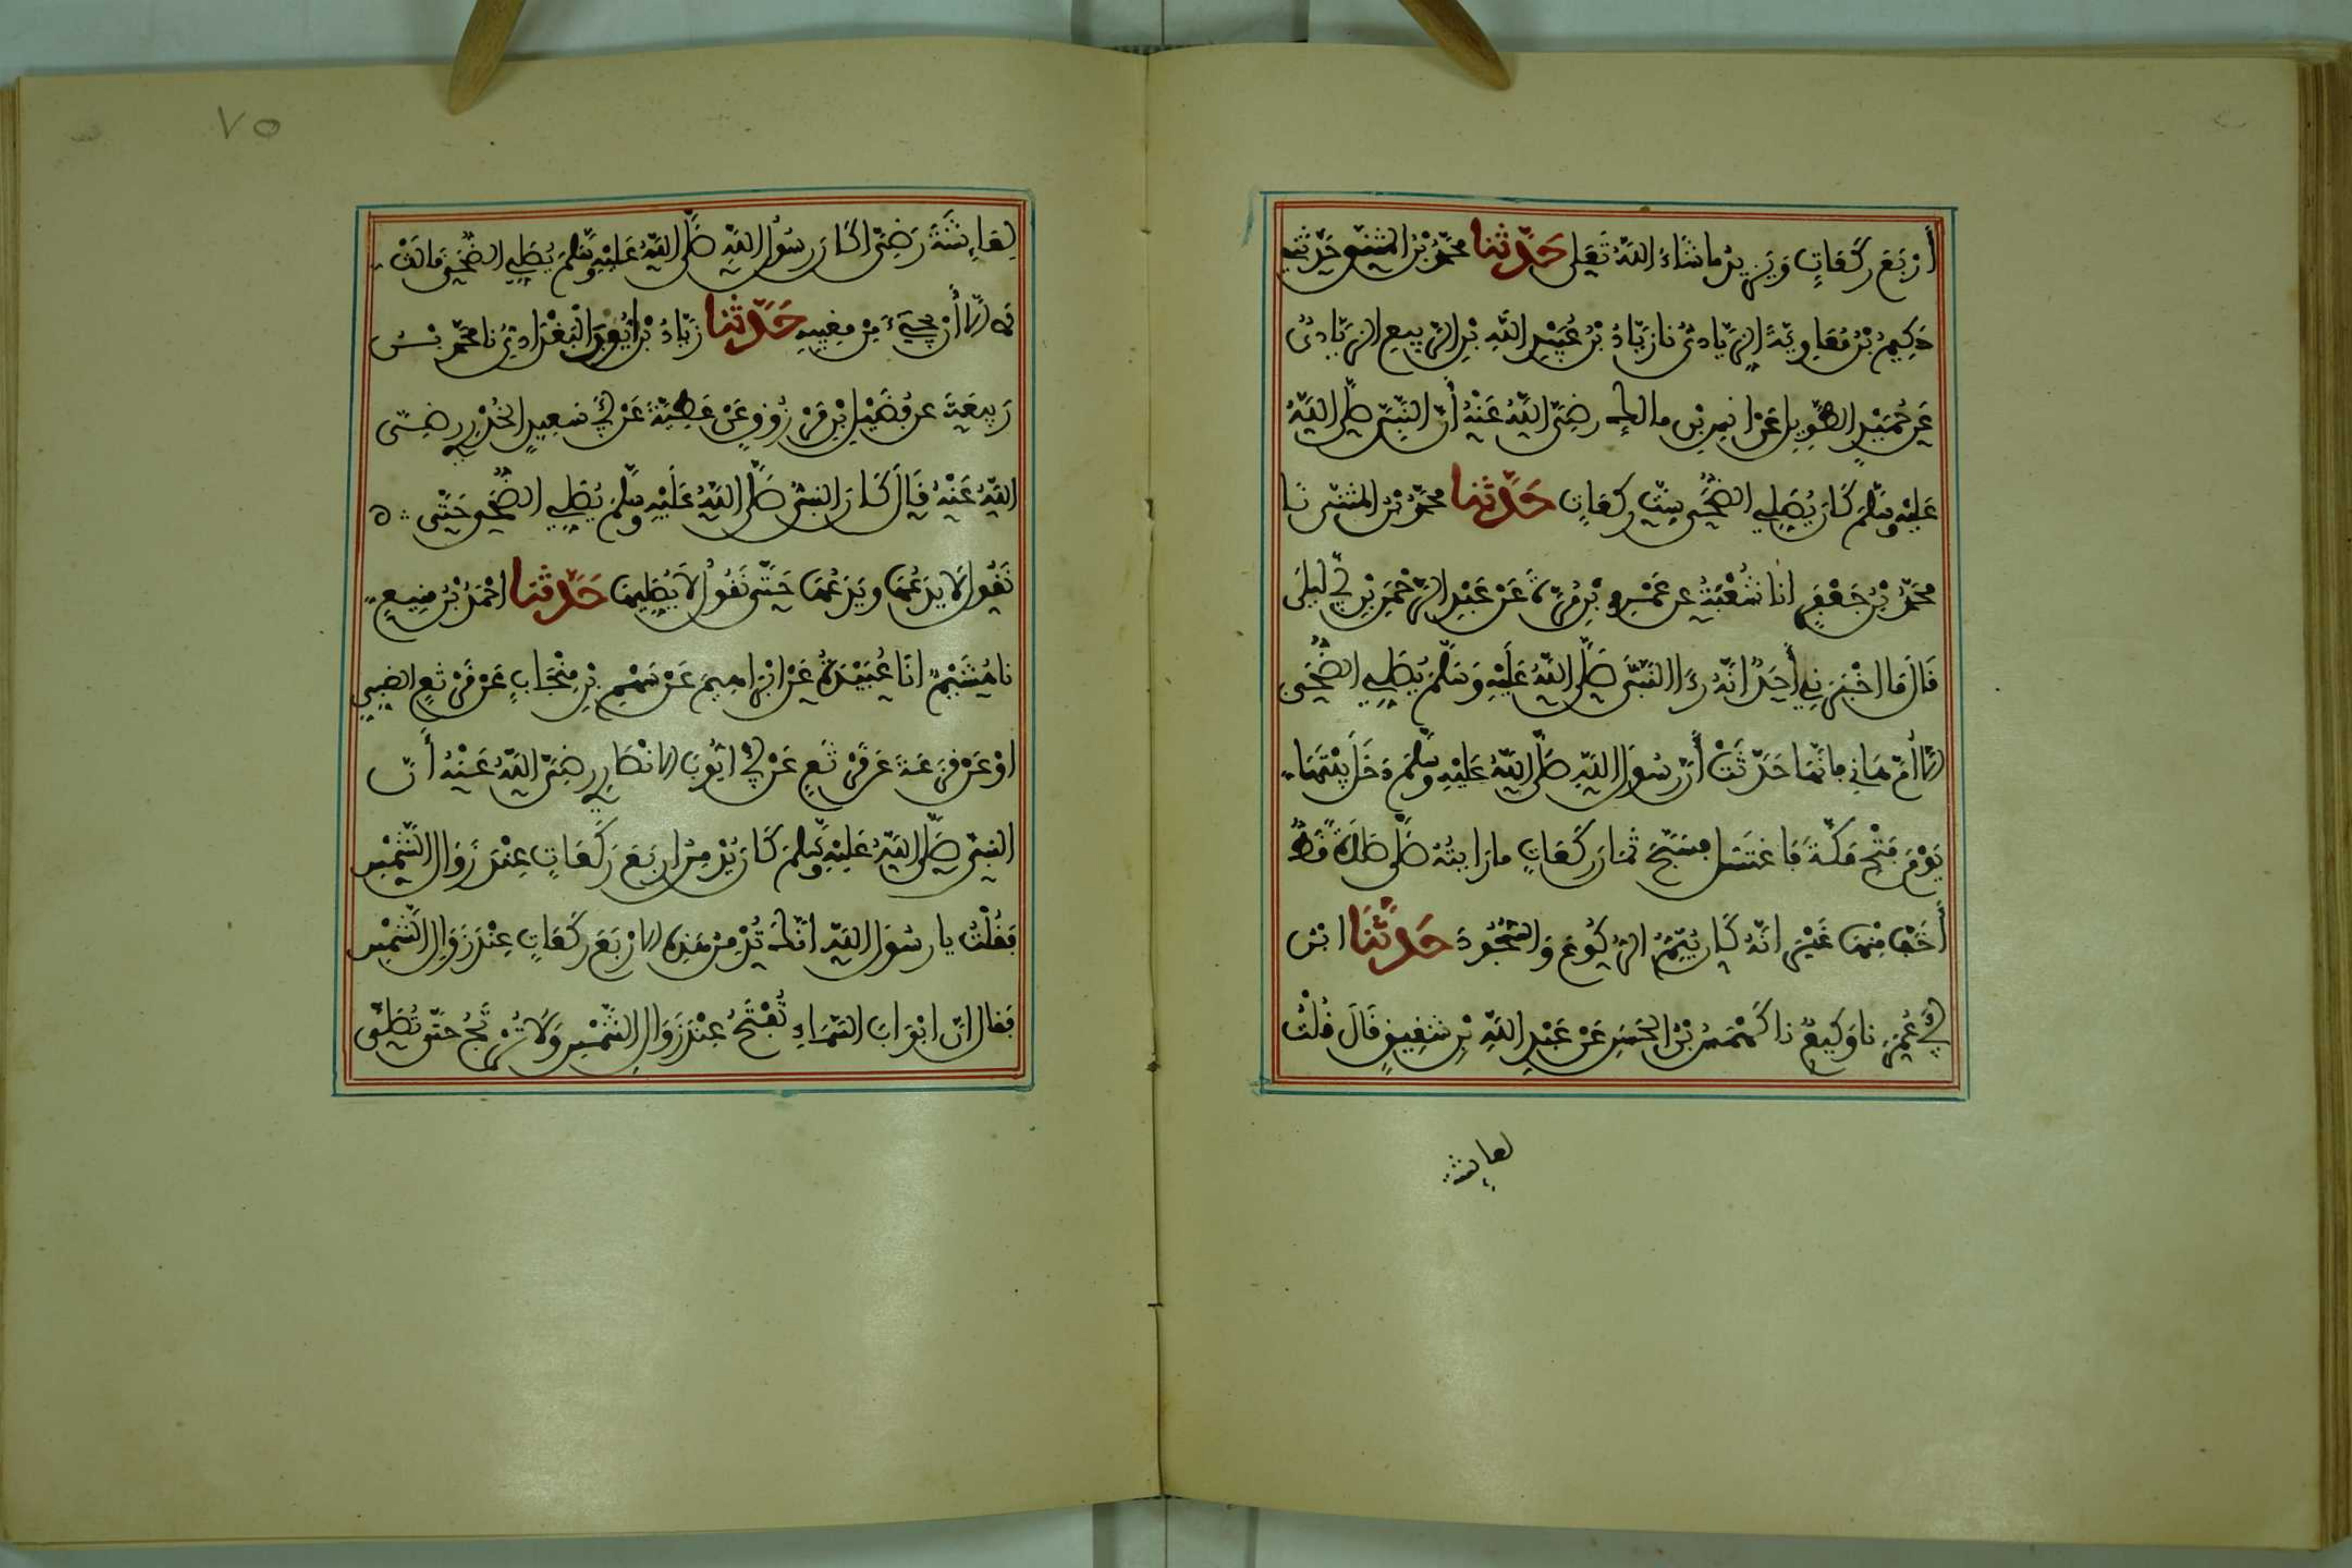 أَرْبَعَ رَكَعَاتٍ وَيَزِيدُ مَا شَاءَ اللَّهُ تَعَلَى حَدَّثَنَا مُحَمَّدُ بْنُ الْمُثَنَّى حَدَّثَنِي
حَكِيمُ بْنُ مُعَاوِيَةَ الزِّيَادِيُّ نَا زِيَادُ بْنُ عُبَيْدِ اللَّهِ بْنِ الرَّبِيعِ الزِّيَادِيُّ
عَنْ حُمَيْدٍ الطَّوِيلِ عَنْ أَنَسِ بْنِ مَالِكٍ رَضِيَ اللَّهُ عَنْهُ أَنَّ النَّبِيَّ صَلَّى اللَّهُ
عَلَيْهِ وَسَلَّمَ كَانَ يُصَلِّي الضُّحَى سِتَّ رَكَعَاتٍ حَدَّثَنَا مُحَمَّدُ بْنُ الْمُثَنَّى نَا
مُحَمَّدُ بْنُ جَعْفَرٍ أَنَا شُعْبَةُ عَنْ عَمْرِو بْنِ مُرَّةَ عَنْ عَبْدِ الرَّحْمَنِ بْنِ أَبِي لَيْلَى
قَالَ مَا أَخْبَرَنِي أَحَدٌ أَنَّهُ رَءَا النَّبِيَّ صَلَّى اللَّهُ عَلَيْهِ وَسَلَّمَ يُصَلِّي الضُّحَى
إِلَّا أُمُّ هَانِي فَإِنَّهَا حَدَّثَتْ أَنَّ رَسُولَ اللَّهِ صَلَّى اللَّهُ عَلَيْهِ وَسَلَّمَ دَخَلَ بَيْتَهَا
يَوْمَ فَتْحِ مَكَّةَ فَاغْتَسَلَ فَسَبَّحَ ثَمَانَ رَكَعَاتٍ مَا رَأَيْتُهُ صَلَّى صَلَاةً قَطُّ
أَخَفَّ مِنْهَا غَيْرَ أَنَّهُ كَانَ يُتِمُّ الرُّكُوعَ وَالسُّجُودَ حَدَّثَنَا ابْنُ
أَبِي عُمَرَ نَا وَكِيعٌ نَا كَهْمَسُ بْنُ الْحَسَنِ عَنْ عَبْدِ اللَّهِ بْنِ شَقِيقٍ قَالَ قُلْتُ
لعايشة
٧٥
لِعَائِشَةَ رَضِيَ أَكَانَ رَسُولُ اللَّهِ صَلَّى اللَّهُ عَلَيْهِ وَسَلَّمَ يُصَلِّي الضُّحَى قَالَتْ
لَا إِلَّا أَنْ يَجِيءَ مِنْ مَغِيبِهِ حَدَّثَنَا زِيَادُ بْنُ أَيُّوبَ الْبَغْدَادِيُّ نَا مُحَمَّدُ بْنُ
رَبِيعَةَ عَنْ فُضَيْلِ بْنِ مَرْزُوقٍ عَنْ عَطِيَّةَ عَنْ أَبِي سَعِيدٍ الْخُدْرِيِّ رَضِيَ
اللَّهُ عَنْهُ قَالَ كَانَ النَّبِيُّ صَلَّى اللَّهُ عَلَيْهِ وَسَلَّمَ يُصَلِّي الضُّحَى حَتَّى
نَقُولَ لَا يَدَعُهَا وَيَدَعُهَا حَتَّى نَقُولَ لَا يُصَلِّيهَا حَدَّثَنَا أَحْمَدُ بْنُ مَنِيعٍ
نَا هُشَيْمٌ أَنَا عُبَيْدَةُ عَنْ إِبْرَاهِيمَ عَنْ سَهْمِ بْنِ مِنْجَابٍ عَنْ قَرْثَعٍ الضَّبِّيِّ
أَوْ عَنْ قَزَعَةَ عَنْ قَرْثَعٍ عَنْ أَبِي أَيُّوبَ الْأَنْصَارِيِّ رَضِيَ اللَّهُ عَنْهُ أَنَّ
النَّبِيَّ صَلَّى اللَّهُ عَلَيْهِ وَسَلَّمَ كَانَ يُدْمِنُ أَرْبَعَ رَكَعَاتٍ عِنْدَ زَوَالِ الشَّمْسِ
فَقُلْتُ يَا رَسُولَ اللَّهِ إِنَّكَ تُدْمِنُ هَذِهِ الْأَرْبَعَ رَكَعَاتٍ عِنْدَ زَوَالِ الشَّمْسِ
فَقَالَ إِنَّ أَبْوَابَ السَّمَاءِ تُفْتَحُ عِنْدَ زَوَالِ الشَّمْسِ وَلَا تُرْتَجُ حَتَّى تُصَلَّى